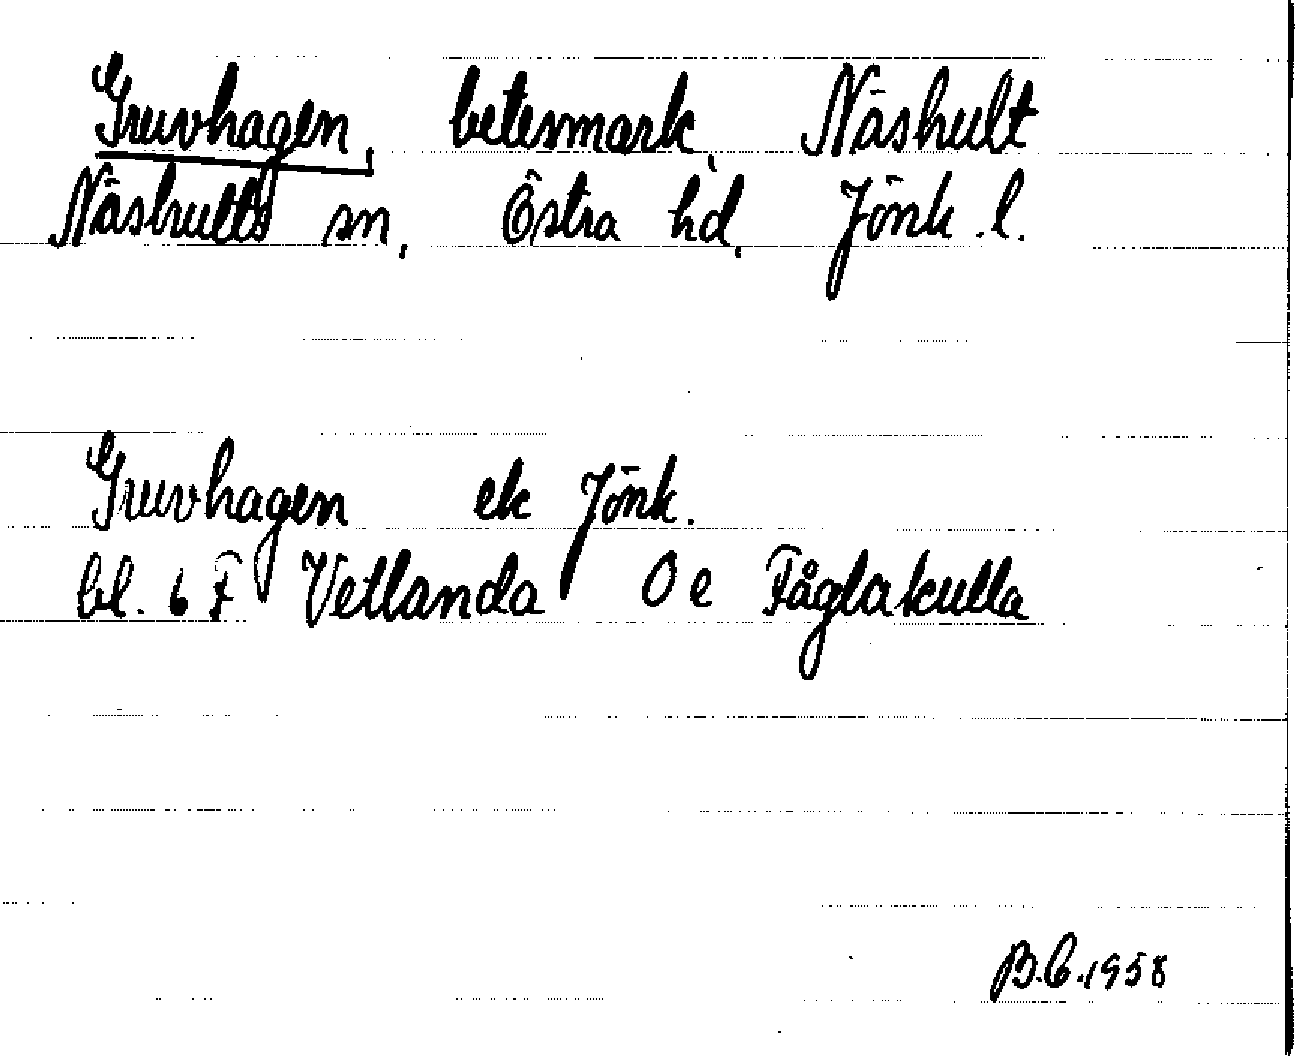 Gruvhagen, betesmark, Näshult
Näshults sn, Östra hd, Jönk.l.
Gruvhagen ek Jönk.
bl. 6 F Vetlanda 0 e Fåglakulla
B.C.1958